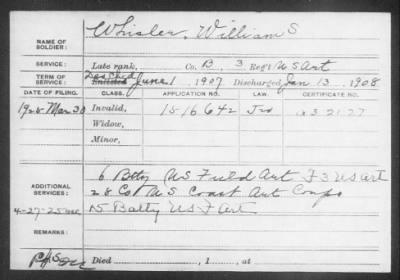 NAME OF SOLDIER: Whisler, William S
SERVICE: Late rank, Co. B, 3 Reg't US Art
TERM OF SERVICE: Enlisted June 1 1907 Discharged Jan 13 1908
DATE OF FILING. CLASS. APPLICATION NO. LAW. CERTIFICATE NO.
1925 Mar 30 Invalid, 1516642
Widow,
Minor,
6 Btty US Field Art F 3 US Art
ADDITIONAL SERVICES: 28 Co US Coast Art Corps
4-27-25 15 Batty US F Art
REMARKS:
Died , 1 , at